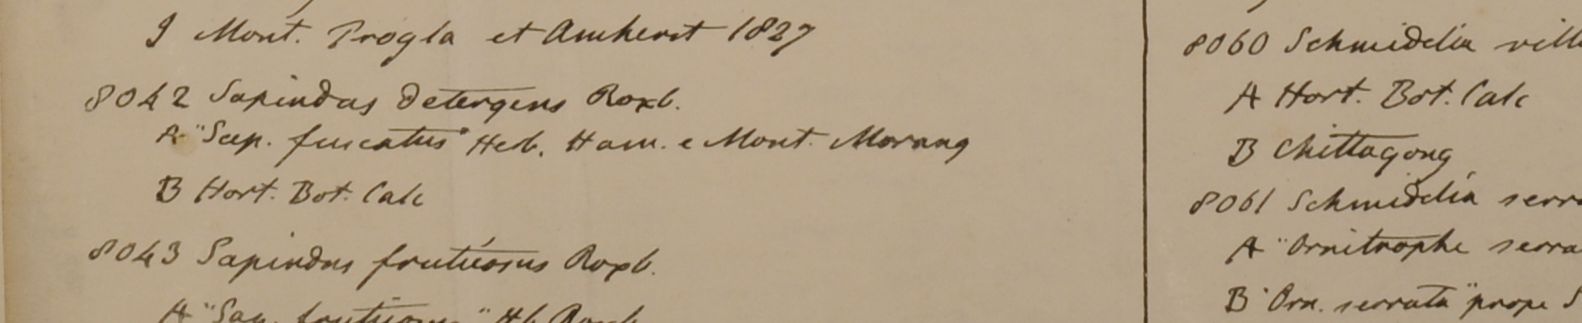 J Mont. Progla et Amherst 1827
8042 Sapindus detergens Roxb.
A "Sap. fuscatus" Heb. Ham. e Mont. Morang
B Hort. Bot. Calc
8043 Sapindus fruticosus Roxb.
A "Sap. fruticosus" Hb. Roxb.
8060 Schmidelia vill
A Hort. Bot. Calc
B Chittagong
8061 Schmidelia serra
A "Ornitrophe serra
B "Orn. serrata" prope S